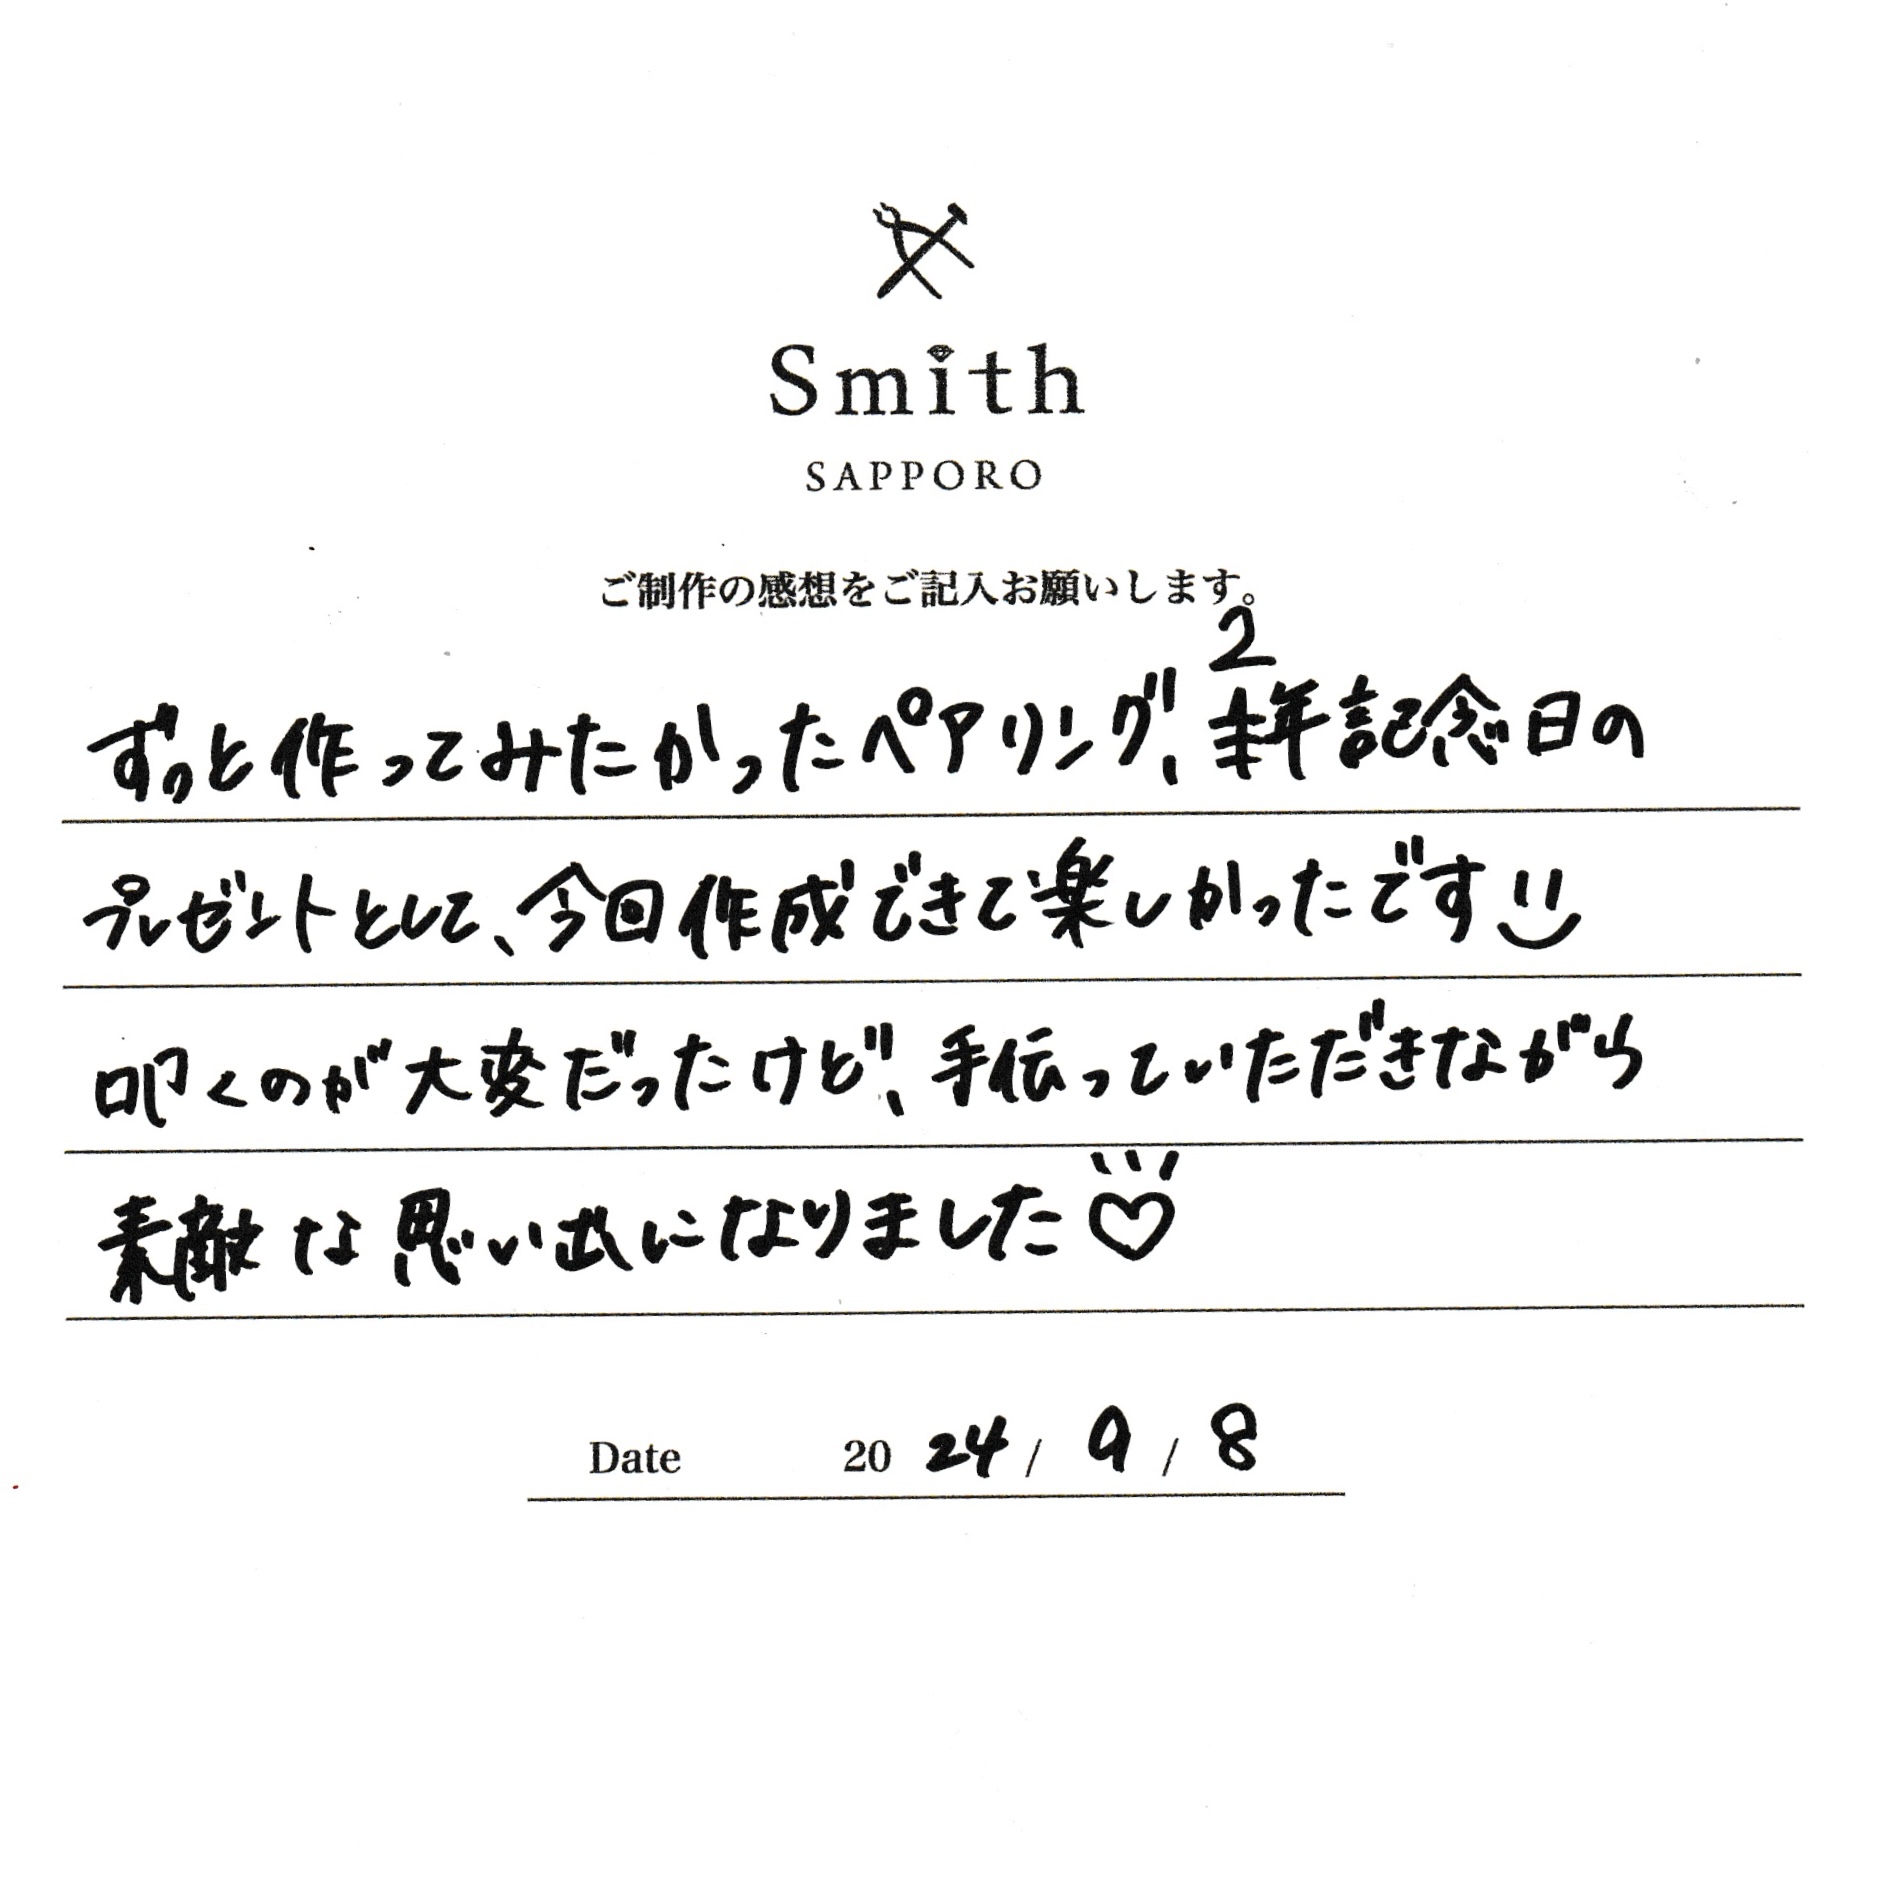 Smith
SAPPORO
ご制作の感想をご記入お願いします。
ずっと作ってみたかったペアリング、2年記念日の
プレゼントとして、今回作成できて楽しかったです
叩くのが大変だったけど、手伝っていただきながら
素敵な思い出になりました♡
Date 2024/9/8